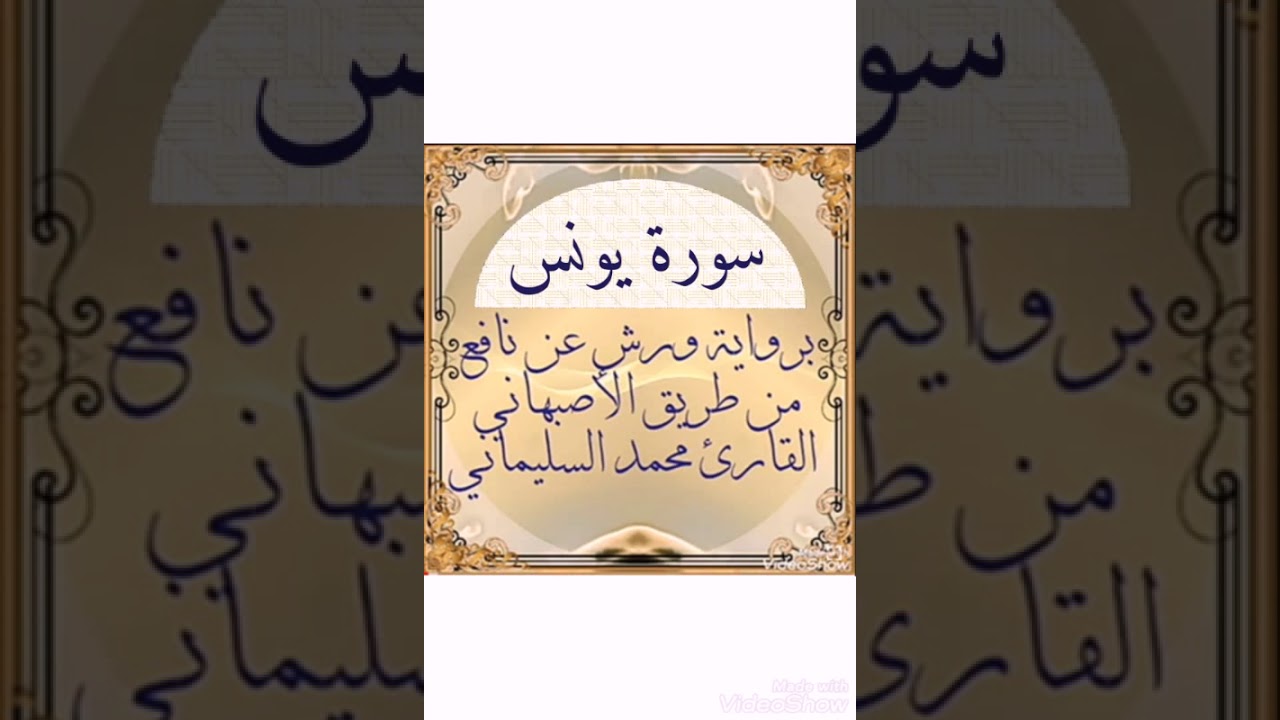 سورة يونس
برواية ورش عن نافع
من طريق الأصبهاني
القارئ محمد السليماني
VideoShow
Made with
VideoShow